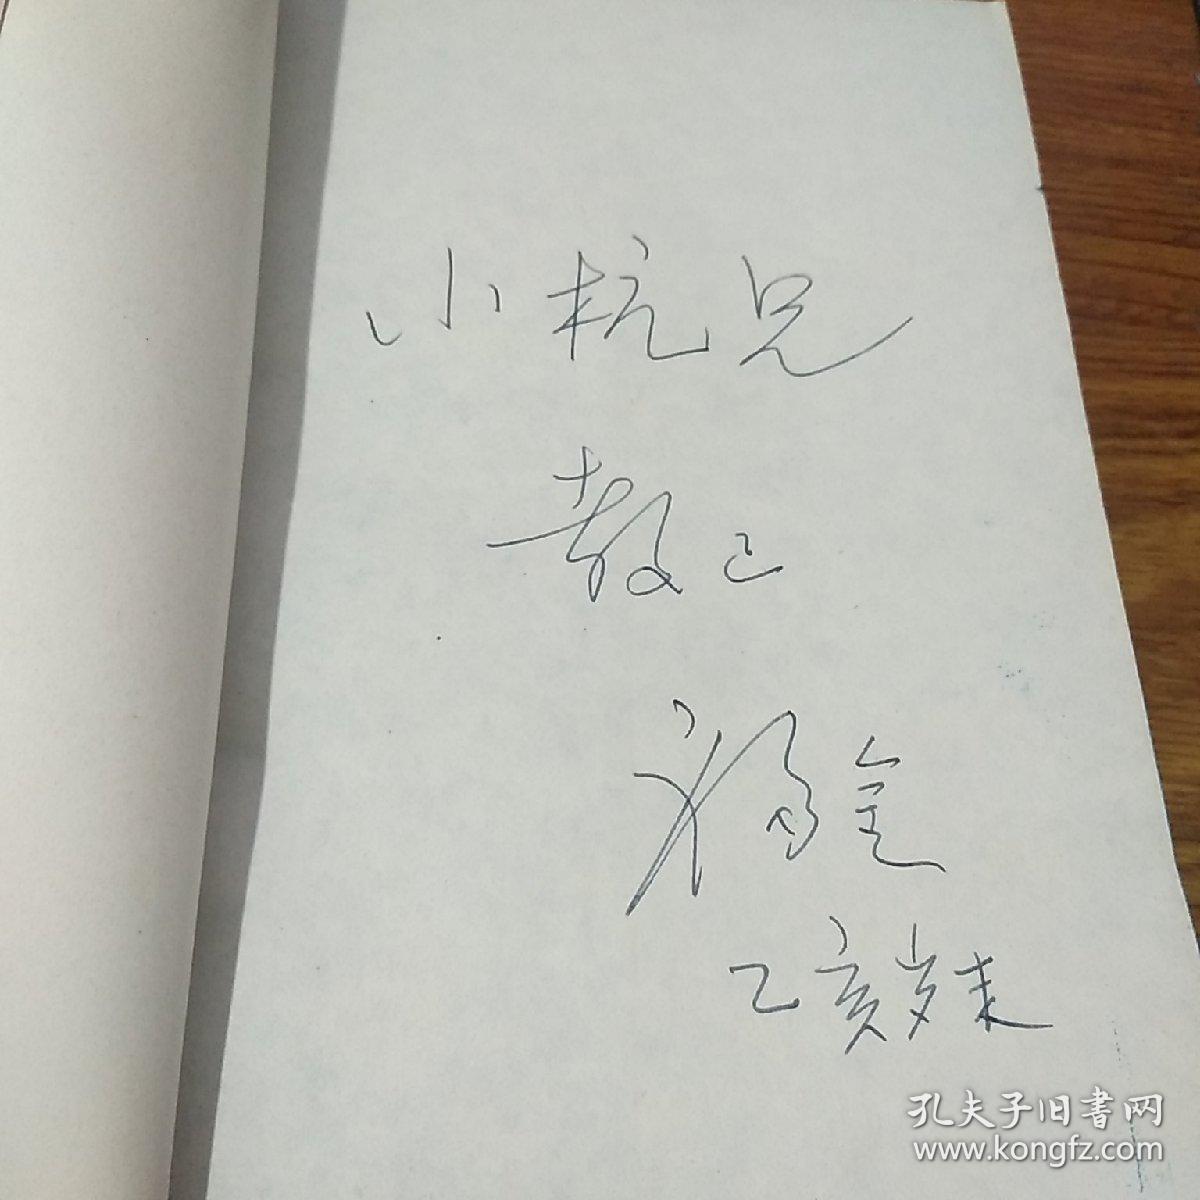 小杭兄
教正
福全
乙亥岁末
孔夫子旧书网
www.kongfz.com